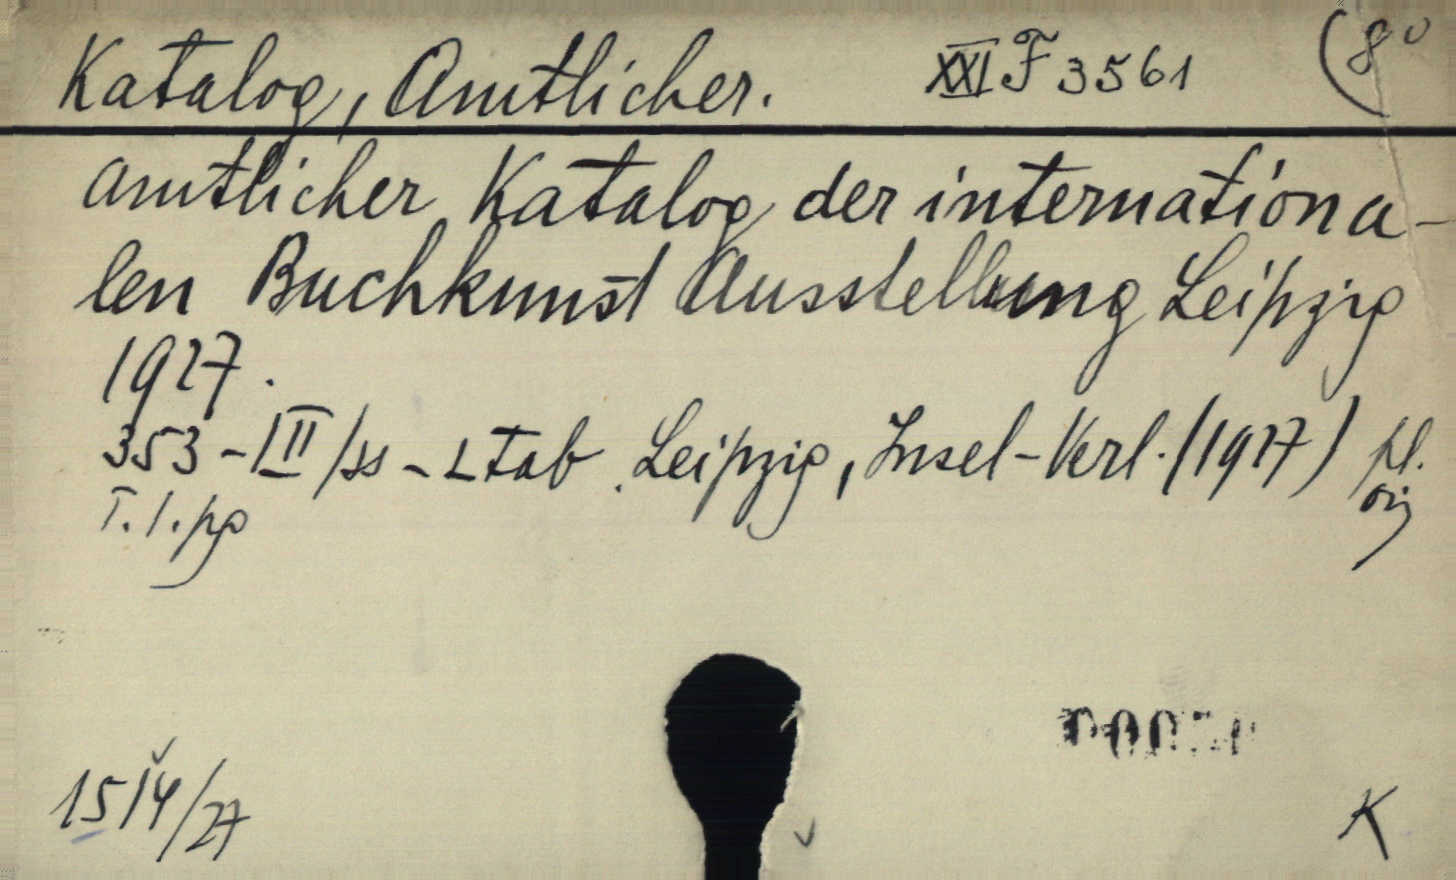 Katalog, Amtlicher. XXI F 3561 (8°
Amtlicher Katalog der internationa-
len Buchkunst Ausstellung Leipzig
1927.
353 - III /ss - Ltab. Leipzig, Insel-Verl. (1927) pl.
T. 1. pg
1514/27
K